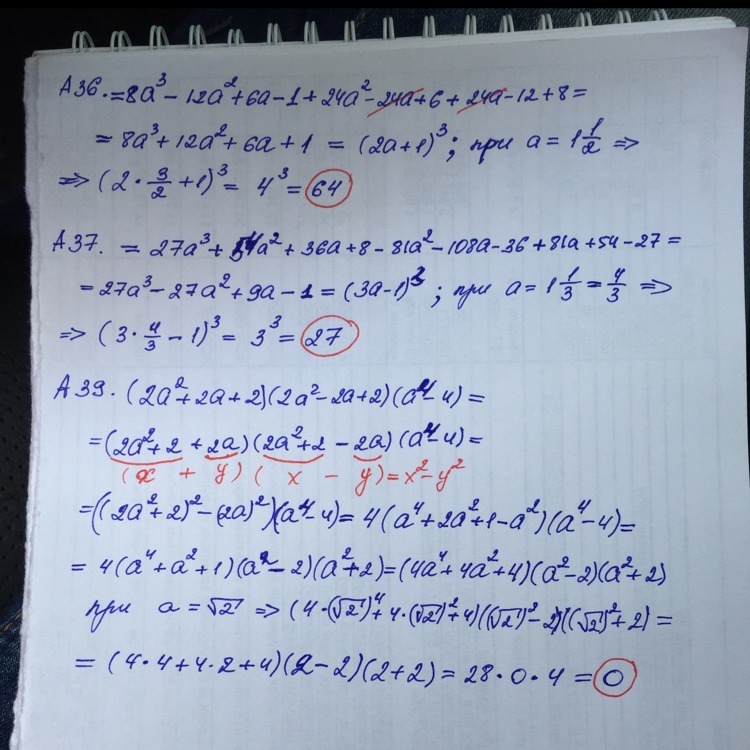 А36. = 8a³ - 12a² + 6a - 1 + 24a² - 24a + 6 + 24a - 12 + 8 =
= 8a³ + 12a² + 6a + 1 = (2a+1)³; при a = 1 1/2 =>
=> (2 · 3/2 + 1)³ = 4³ = 64
А37. = 27a³ + 54a² + 36a + 8 - 81a² - 108a - 36 + 81a + 54 - 27 =
= 27a³ - 27a² + 9a - 1 = (3a-1)³; при a = 1 1/3 = 4/3 =>
=> (3 · 4/3 - 1)³ = 3³ = 27
А39. (2a² + 2a + 2)(2a² - 2a + 2)(a⁴ - 4) =
= (2a² + 2 + 2a)(2a² + 2 - 2a)(a⁴ - 4) =
(x + y)(x - y) = x² - y²
= ((2a² + 2)² - (2a)²)(a⁴ - 4) = 4(a⁴ + 2a² + 1 - a²)(a⁴ - 4) =
= 4(a⁴ + a² + 1)(a² - 2)(a² + 2) = (4a⁴ + 4a² + 4)(a² - 2)(a² + 2)
при a = √2 => (4 · (√2)⁴ + 4 · (√2)² + 4)((√2)² - 2)((√2)² + 2) =
= (4 · 4 + 4 · 2 + 4)(2 - 2)(2 + 2) = 28 · 0 · 4 = 0